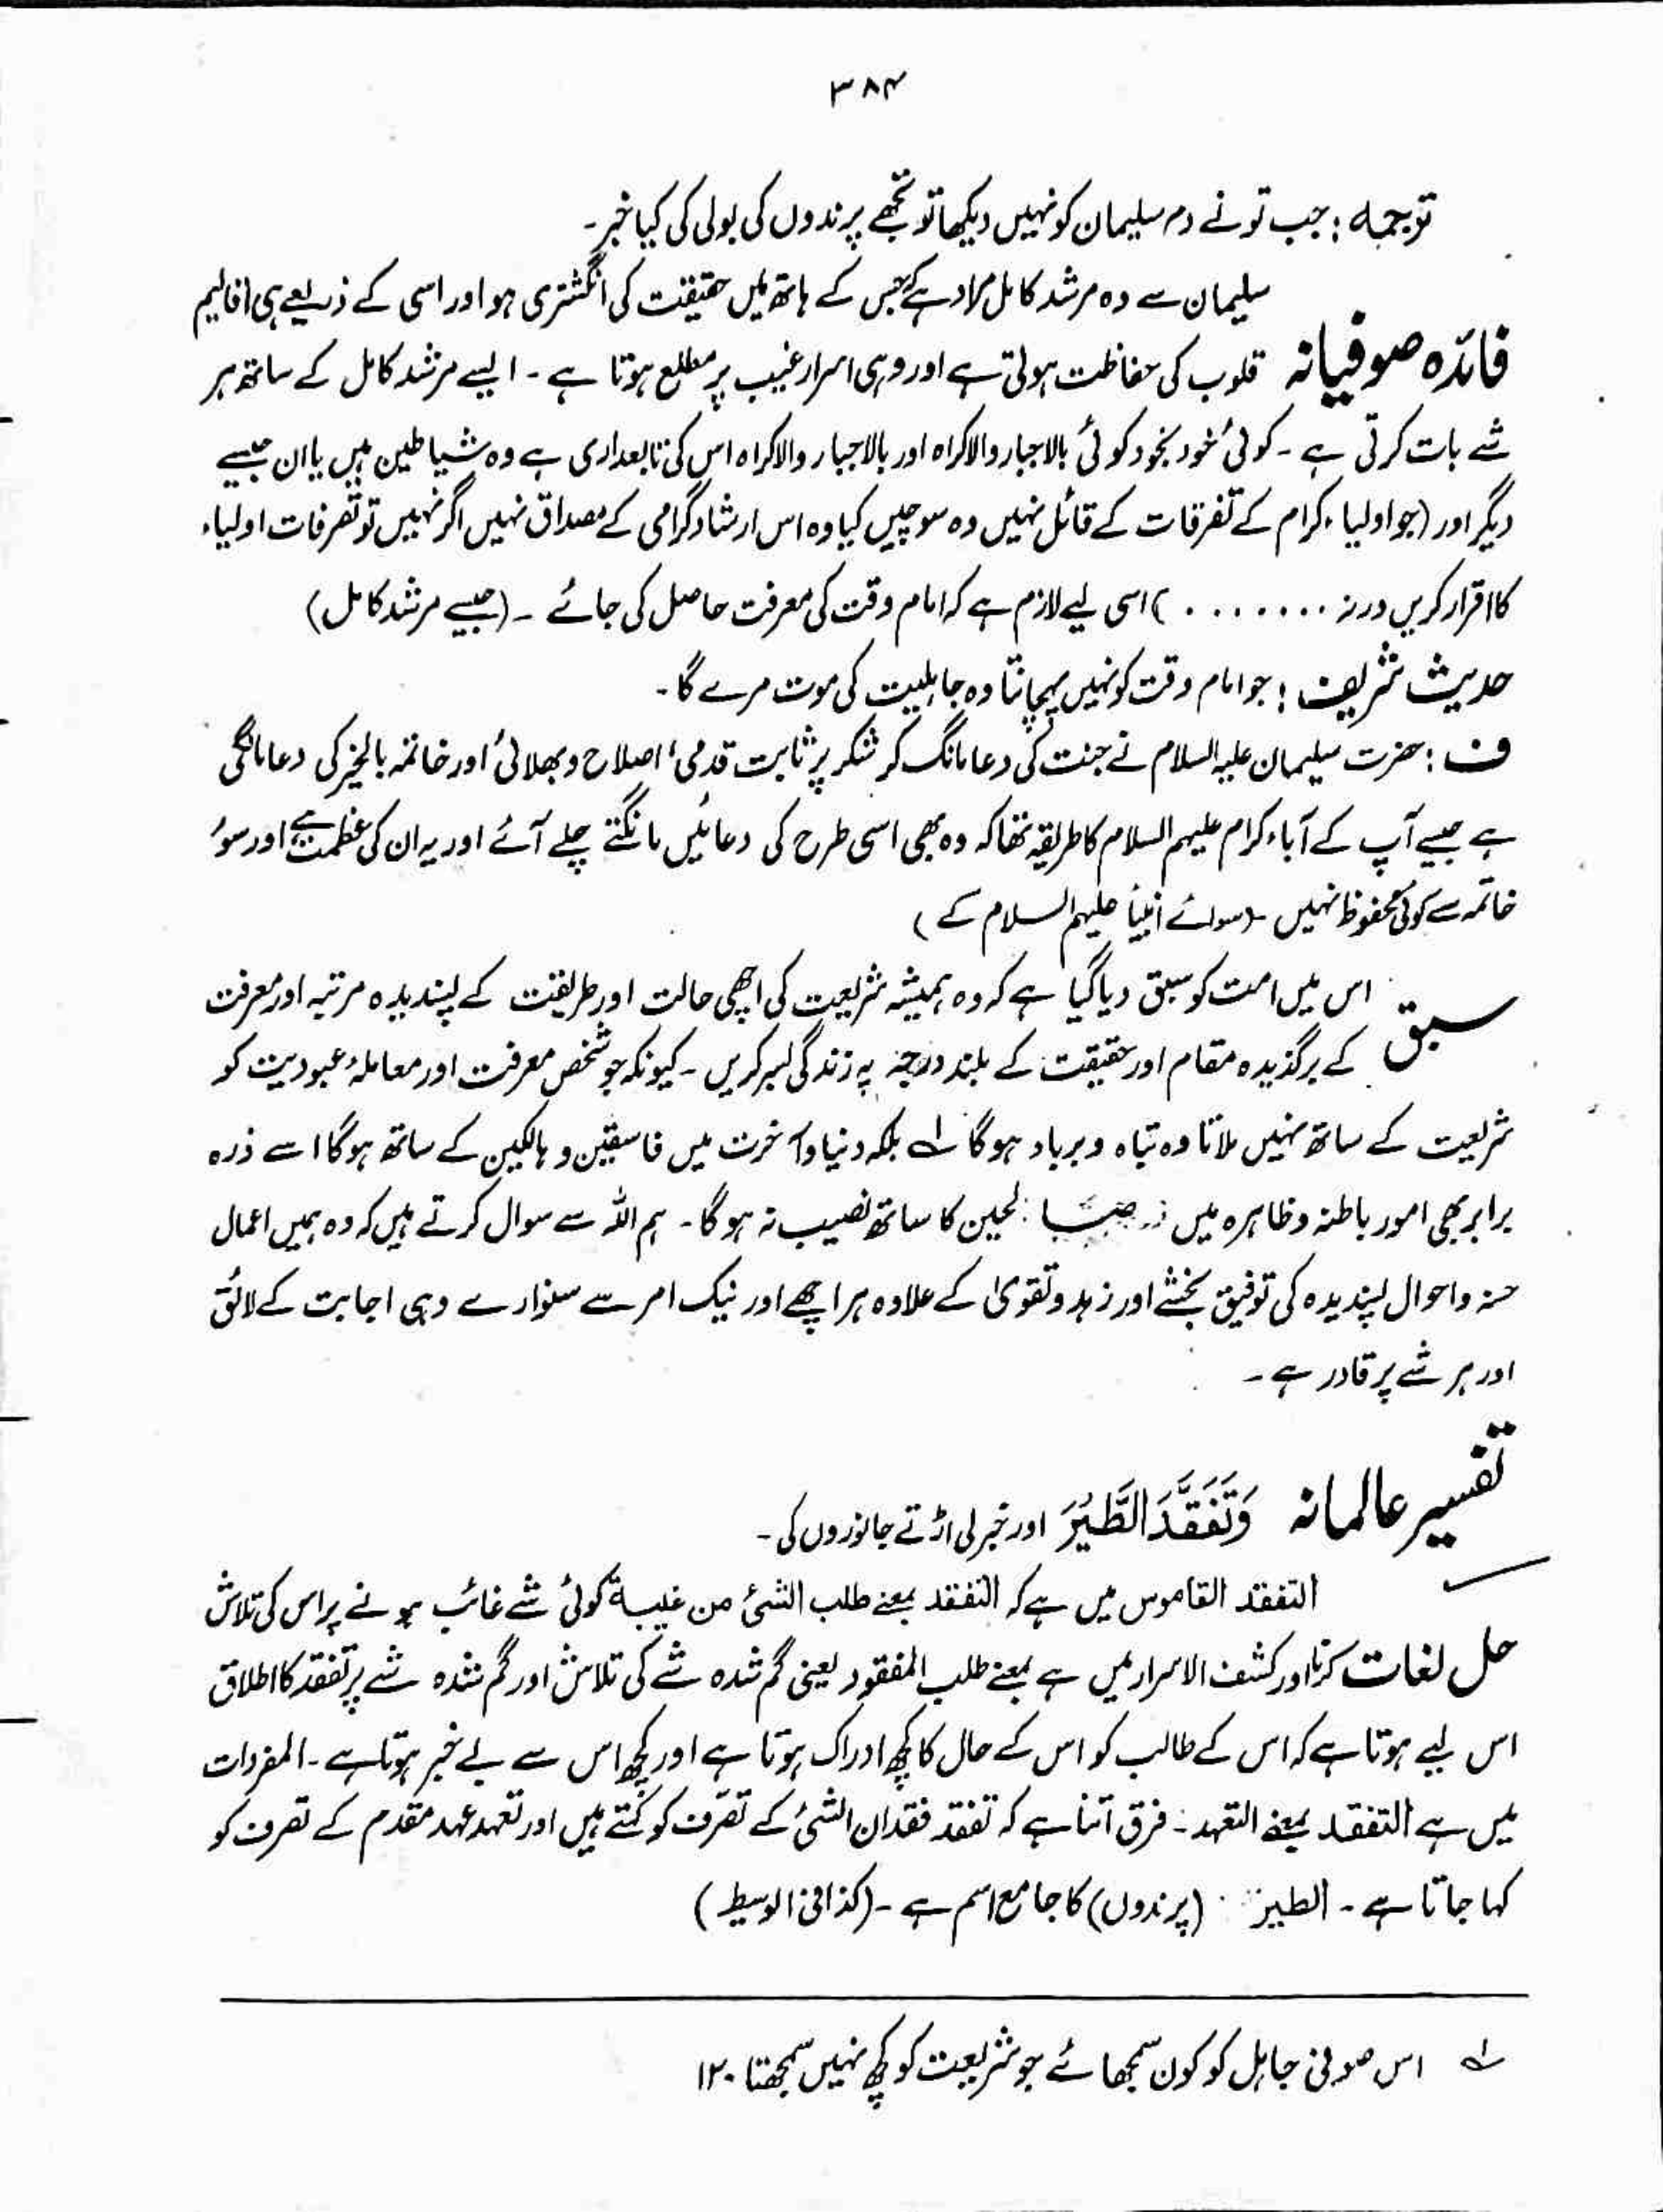 ۳۸۴
ترجمہ : جب تو نے دم سلیمان کو نہیں دیکھا تو تجھے پرندوں کی بولی کی کیا خبر۔
سلیمان سے وہ مرشد کامل مراد ہے جس کے ہاتھ میں حقیقت کی انگشتری ہو اور اسی کے ذریعے ہی اقالیم
فائدہ صوفیانہ قلوب کی حفاظت ہوتی ہے اور وہی اسرار غیب پر مطلع ہوتا ہے ۔ ایسے مرشد کامل کے ساتھ ہر
شے بات کرتی ہے ۔ کوئی خود بخود کوئی بالاجبار والاکراہ اور بالاجبار والاکراہ اس کی تابعداری ہے وہ شیاطین ہیں یا ان جیسے
دیگر اور (جو اولیاء کرام کے تصرفات کے قائل نہیں وہ سوچیں کیا وہ اس ارشاد گرامی کے مصداق نہیں اگر نہیں تو تصرفات اولیاء
کا اقرار کریں ورنہ ۔۔۔۔۔۔۔ ) اسی لیے لازم ہے کہ امام وقت کی معرفت حاصل کی جائے ۔ (جیسے مرشد کامل)
حدیث شریف : جو امام وقت کو نہیں پہچانتا وہ جاہلیت کی موت مرے گا ۔
ف : حضرت سلیمان علیہ السلام نے جنت کی دعا مانگ کر شکر پر ثابت قدمی، اصلاح و بھلائی اور خاتمہ بالخیر کی دعا مانگی
ہے جیسے آپ کے آباء کرام علیہم السلام کا طریقہ تھا کہ وہ بھی اسی طرح کی دعائیں مانگتے چلے آئے اور یہ ان کی عظمت ہے اور سوء
خاتمہ سے کوئی محفوظ نہیں (سوائے انبیاء علیہم السلام کے )
اس میں امت کو سبق دیا گیا ہے کہ وہ ہمیشہ شریعت کی اچھی حالت اور طریقت کے پسندیدہ مرتبہ اور معرفت
سبق کے برگزیدہ مقام اور حقیقت کے بلند درجہ پہ زندگی بسر کریں ۔ کیونکہ جو شخص معرفت اور معاملہ عبودیت کو
شریعت کے ساتھ نہیں ملاتا وہ تباہ و برباد ہو گا لہ بلکہ دنیا و آخرت میں فاسقین و ہالکین کے ساتھ ہو گا اسے ذرہ
برابر بھی امور باطنہ و ظاہرہ میں لحین کا ساتھ نصیب نہ ہو گا ۔ ہم اللہ سے سوال کرتے ہیں کہ وہ ہمیں اعمال
حسنہ و احوال پسندیدہ کی توفیق بخشے اور زہد و تقویٰ کے علاوہ ہر اچھے اور نیک امر سے سنوارے وہی اجابت کے لائق
اور ہر شے پر قادر ہے ۔
تفسیر عالمانہ وَتَفَقَّدَ الطَّيْرَ اور خبر لی اڑتے جانوروں کی ۔
التفقد القاموس میں ہے کہ التفقد بمعنے طلب الشئ من غیبۃ کوئی شے غائب ہونے پر اس کی تلاش
حل لغات کرنا اور کشف الاسرار میں ہے بمعنے طلب المفقود یعنی گم شدہ شے کی تلاش اور گم شدہ شے پر تفقد کا اطلاق
اس لیے ہوتا ہے کہ اس کے طالب کو اس کے حال کا کچھ ادراک ہوتا ہے اور کچھ اس سے بے خبر ہوتا ہے ۔ المفردات
میں ہے التفقد بمعنے التعہد ۔ فرق اتنا ہے کہ تفقد فقدان الشئ کے تصرف کو کہتے ہیں اور تعہد عہد مقدم کے تصرف کو
کہا جاتا ہے ۔ الطیر (پرندوں) کا جامع اسم ہے ۔ (کذافی الوسیط )
لہ اس صوفی جاہل کو کون سمجھائے جو شریعت کو کچھ نہیں سمجھتا ۱۲۰